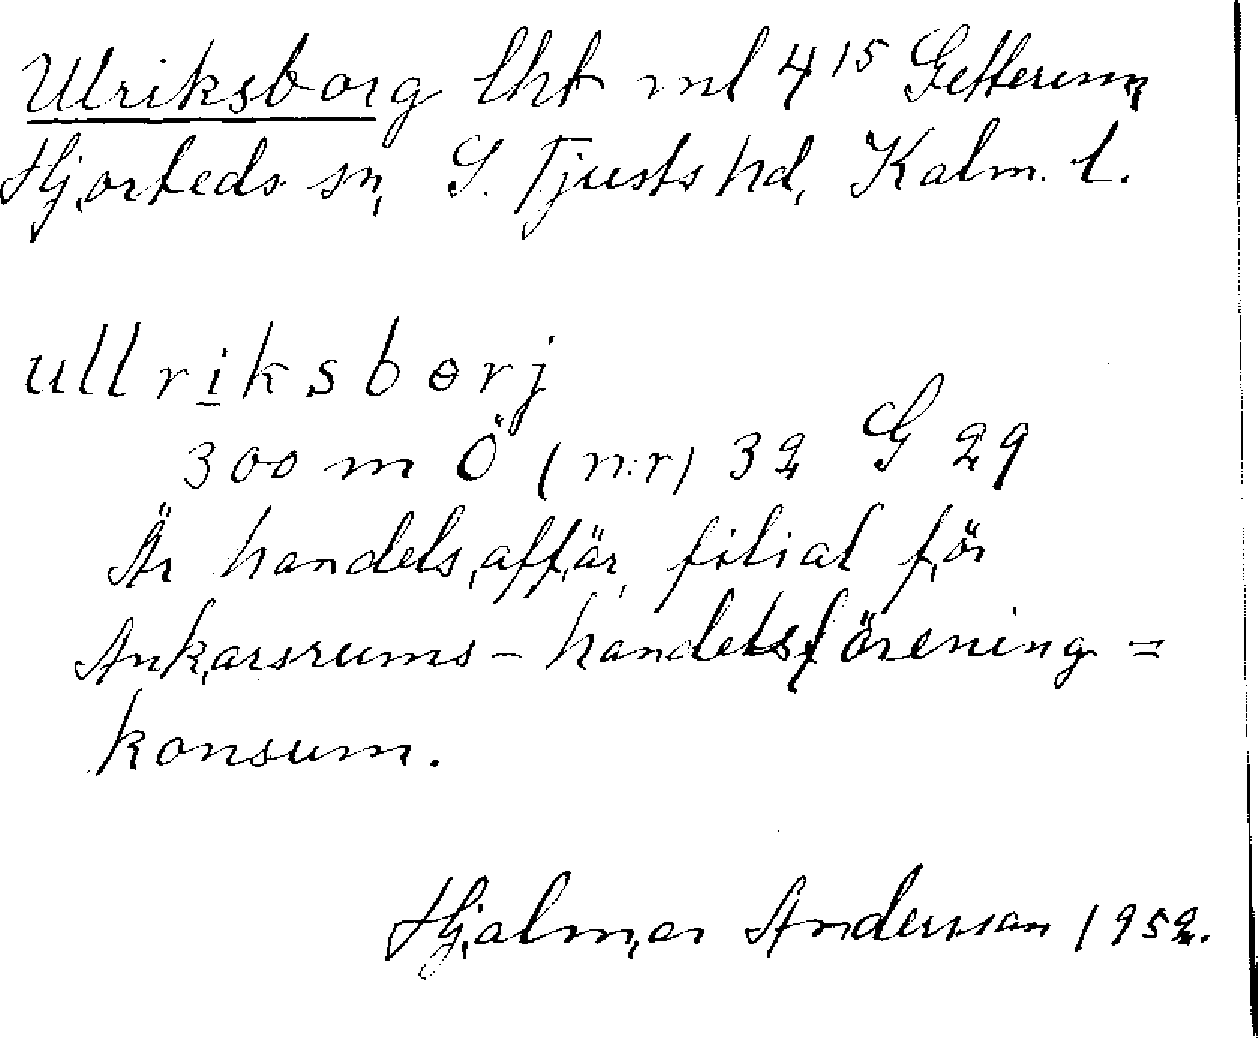 Ulriksborg lht ml 4¹⁵ Getterum,
Hjorteds sn, S. Tjusts hd, Kalm. l.
ullriksbɵrj
300 m Ö (nr) 32 G 29
Är handelsaffär, filial för
Ankarsrums-handelsförening =
konsum.
Hjalmar Andersson 1952.